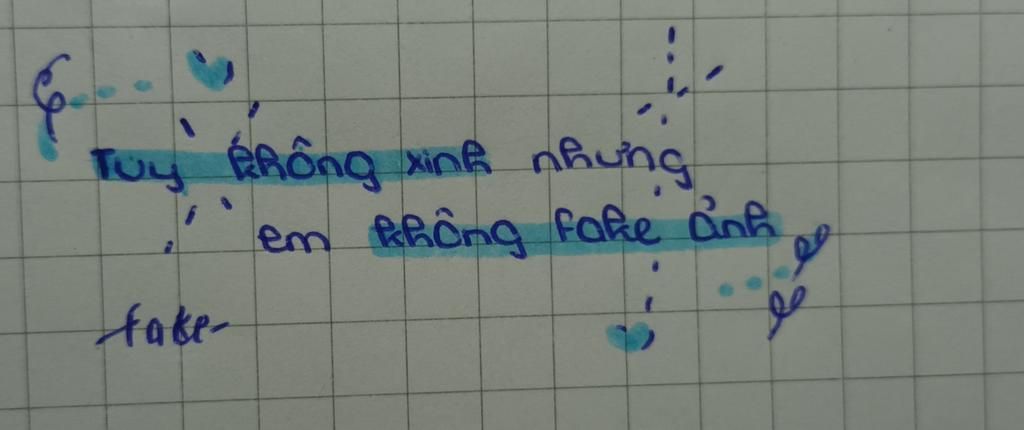 Tuy không xinh nhưng
em không fake ảnh
fake